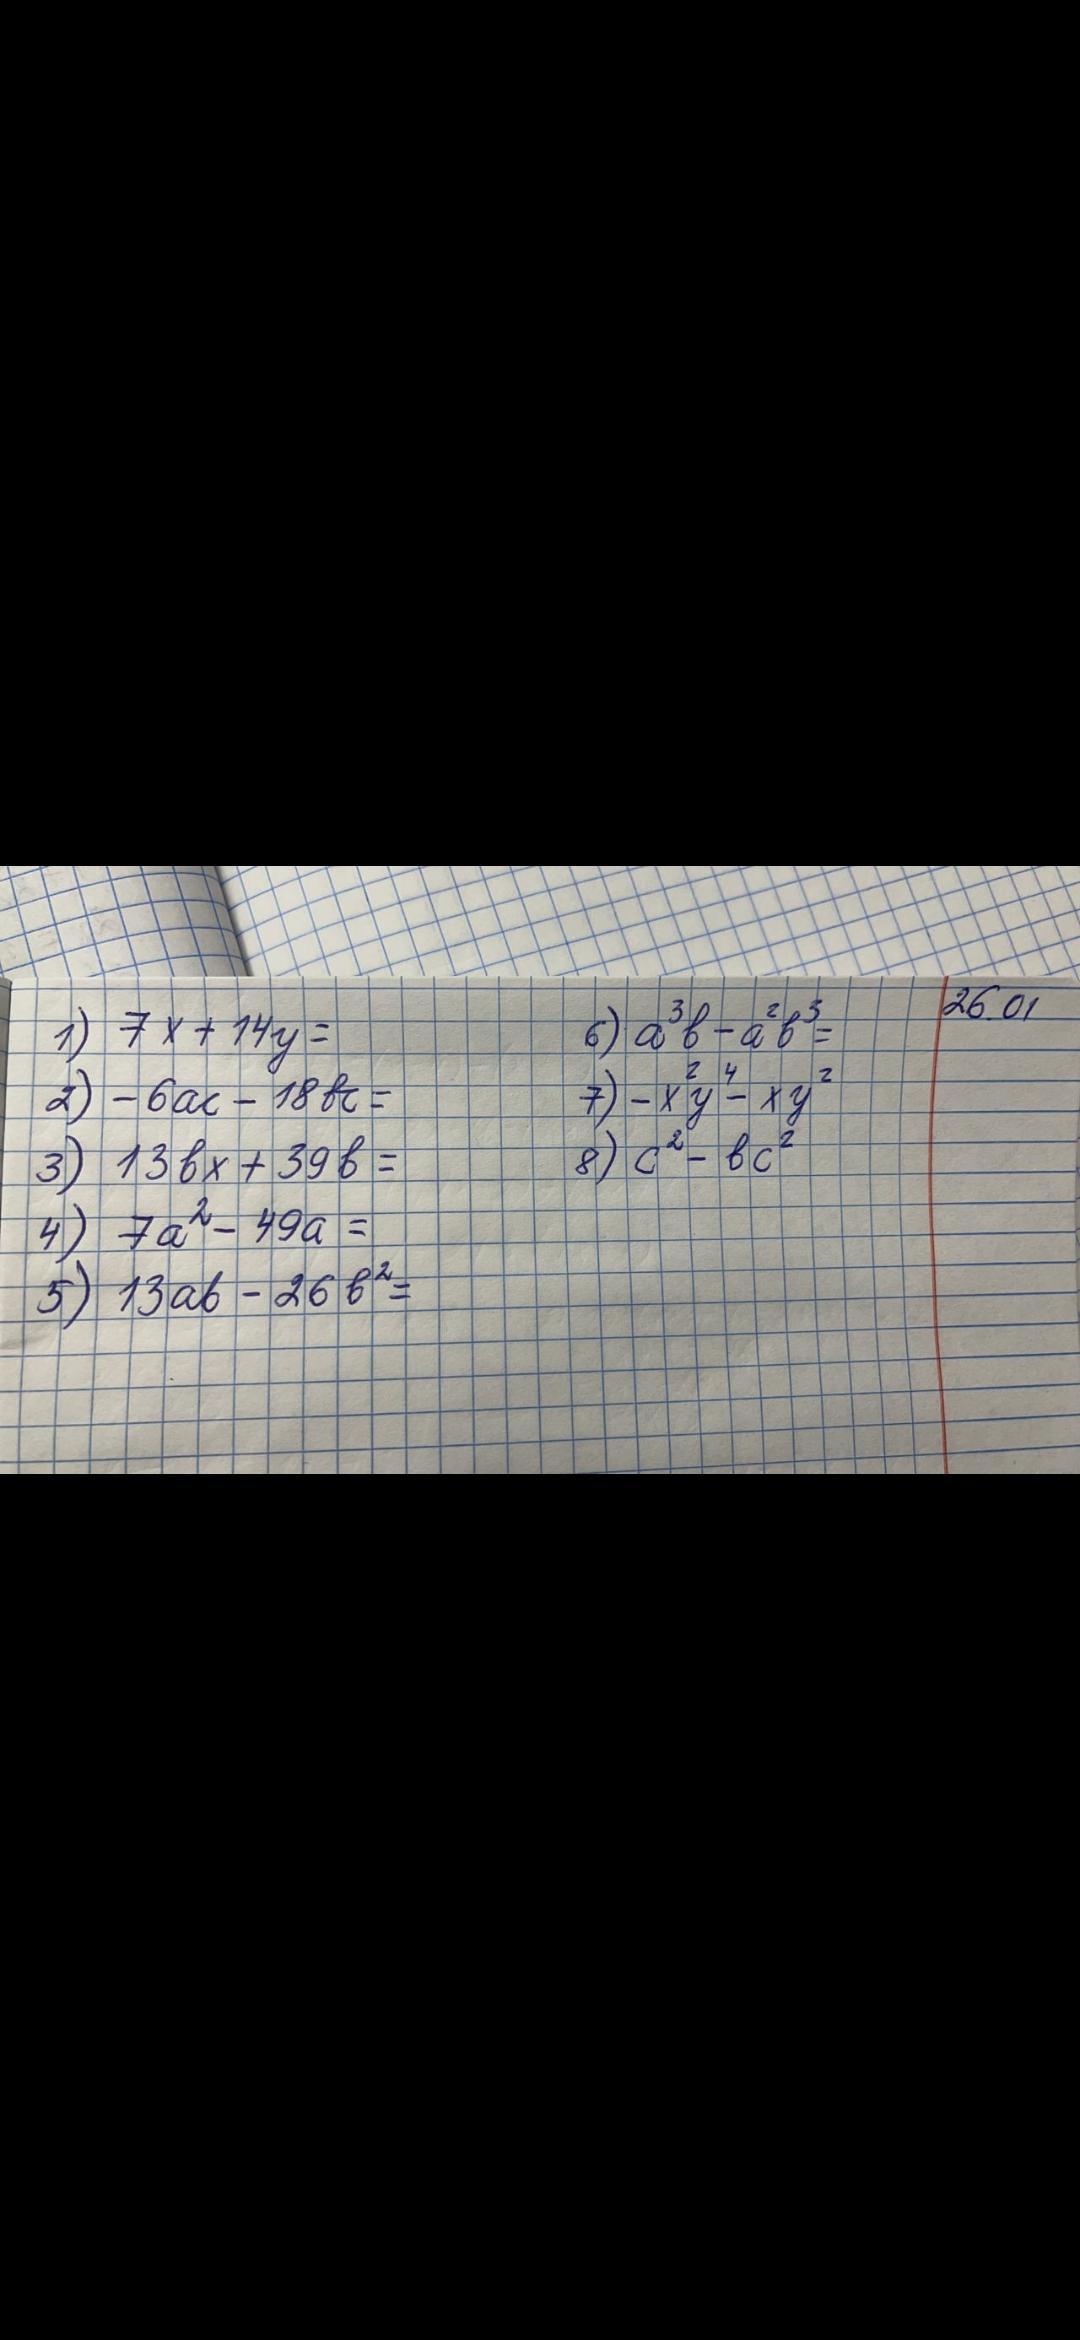 1) 7x + 14y =
2) -6ac - 18bc =
3) 13bx + 39b =
4) 7a² - 49a =
5) 13ab - 26b² =
6) a³b - a²b³ =
7) -x²y⁴ - xy²
8) c² - bc²
26.01